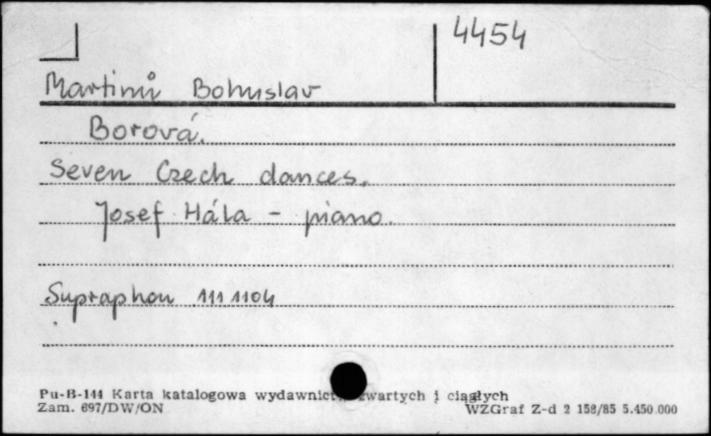 4454
Martinů Bohuslav
Borová.
Seven Czech dances.
Josef Hála - piano.
Supraphon 111 1104
Pu-B-144 Karta katalogowa wydawnictw zwartych i ciągłych
Zam. 697/DW/ON WZGraf Z-d 2 158/85 5.450.000